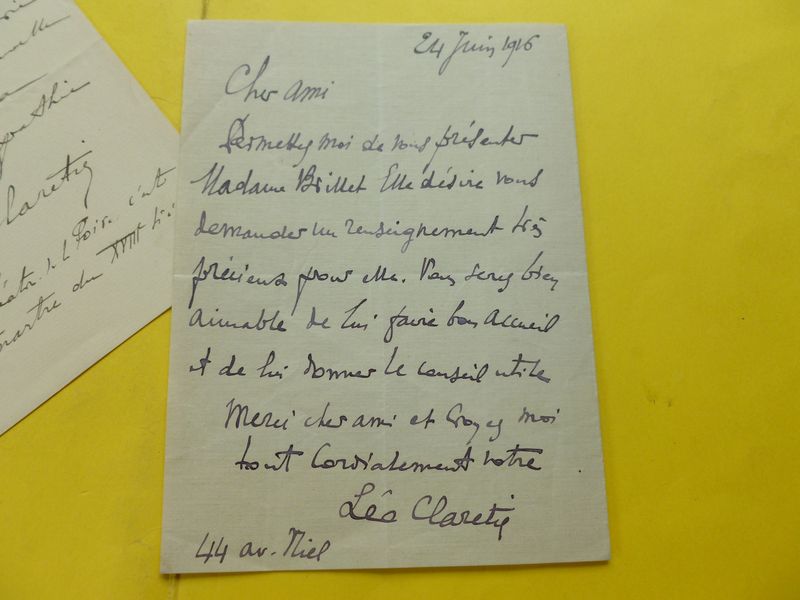 24 Juin 1916
Cher ami
Permettez moi de vous présenter
Madame Brillet Elle désire vous
demander un renseignement très
précieux pour elle. Vous serez bien
aimable de lui faire bon accueil
et de lui donner le conseil utile
Merci cher ami et croyez moi
tout cordialement votre
Léo Claretie
44 av. Niel
Claretie
de la Foire c'est
du XVIII